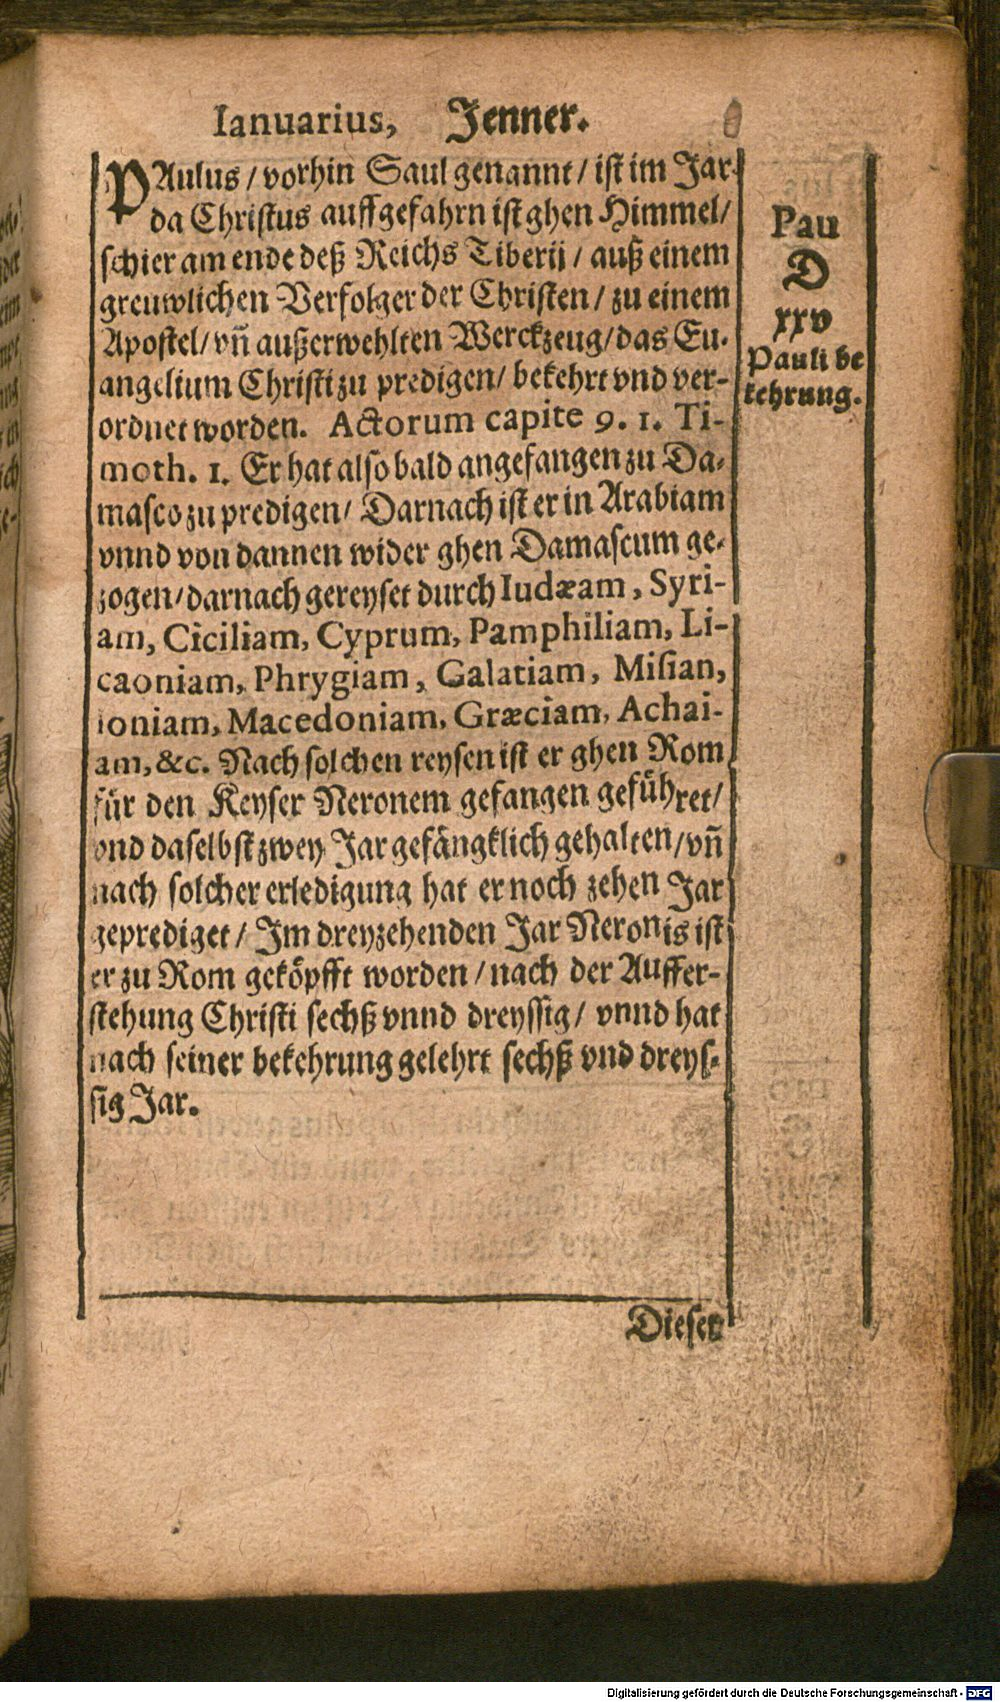 Ianuarius, Jenner.
PAulus / vorhin Saul genannt / ist im Jar
da Christus auffgefahrn ist ghen Himmel /
schier am ende deß Reichs Tiberij / auß einem
greuwlichen Verfolger der Christen / zu einem
Apostel / vñ außerwehlten Werckzeug / das Eu-
angelium Christi zu predigen / bekehrt vnd ver-
ordnet worden. Actorum capite 9. 1. Ti-
moth. 1. Er hat also bald angefangen zu Da-
masco zu predigen / Darnach ist er in Arabiam
vnnd von dannen wider ghen Damascum ge-
zogen / darnach gereyset durch Iudæam, Syri-
am, Ciciliam, Cyprum, Pamphiliam, Li-
caoniam, Phrygiam, Galatiam, Misian,
ioniam, Macedoniam, Græciam, Achai-
am, &c. Nach solchen reysen ist er ghen Rom
für den Keyser Neronem gefangen geführet /
vnd daselbst zwey Jar gefängklich gehalten / vñ
nach solcher erledigung hat er noch zehen Jar
geprediget / Im dreyzehenden Jar Neronis ist
er zu Rom geköpfft worden / nach der Auffer-
stehung Christi sechß vnnd dreyssig / vnnd hat
nach seiner bekehrung gelehrt sechß vnd dreys-
sig Jar.
Pau
D
xxv
Pauli be
kehrung.
Dieser
Digitalisierung gefördert durch die Deutsche Forschungsgemeinschaft - DFG